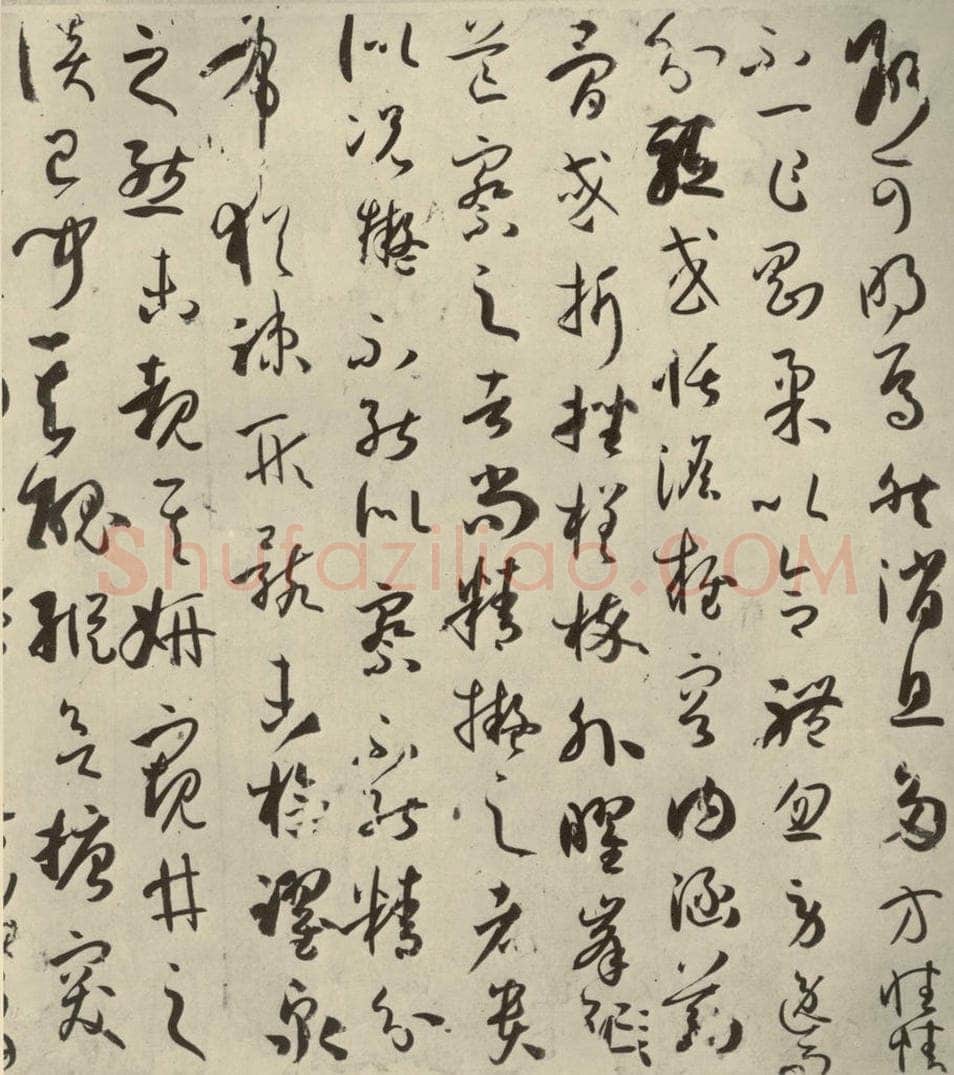 斷可明焉然消息多方性情
不一乍剛柔以合體忽勞逸而
分驅或恬憺雍容內涵筋
骨或折挫槎枿外曜峯
芒察之者尚精擬之者貴
似況擬不能似察不能精分
布猶疎形骸未檢躍泉
之態未覩其妍窺井之
談已聞其醜縱欲搪突
Shufaziliao.COM